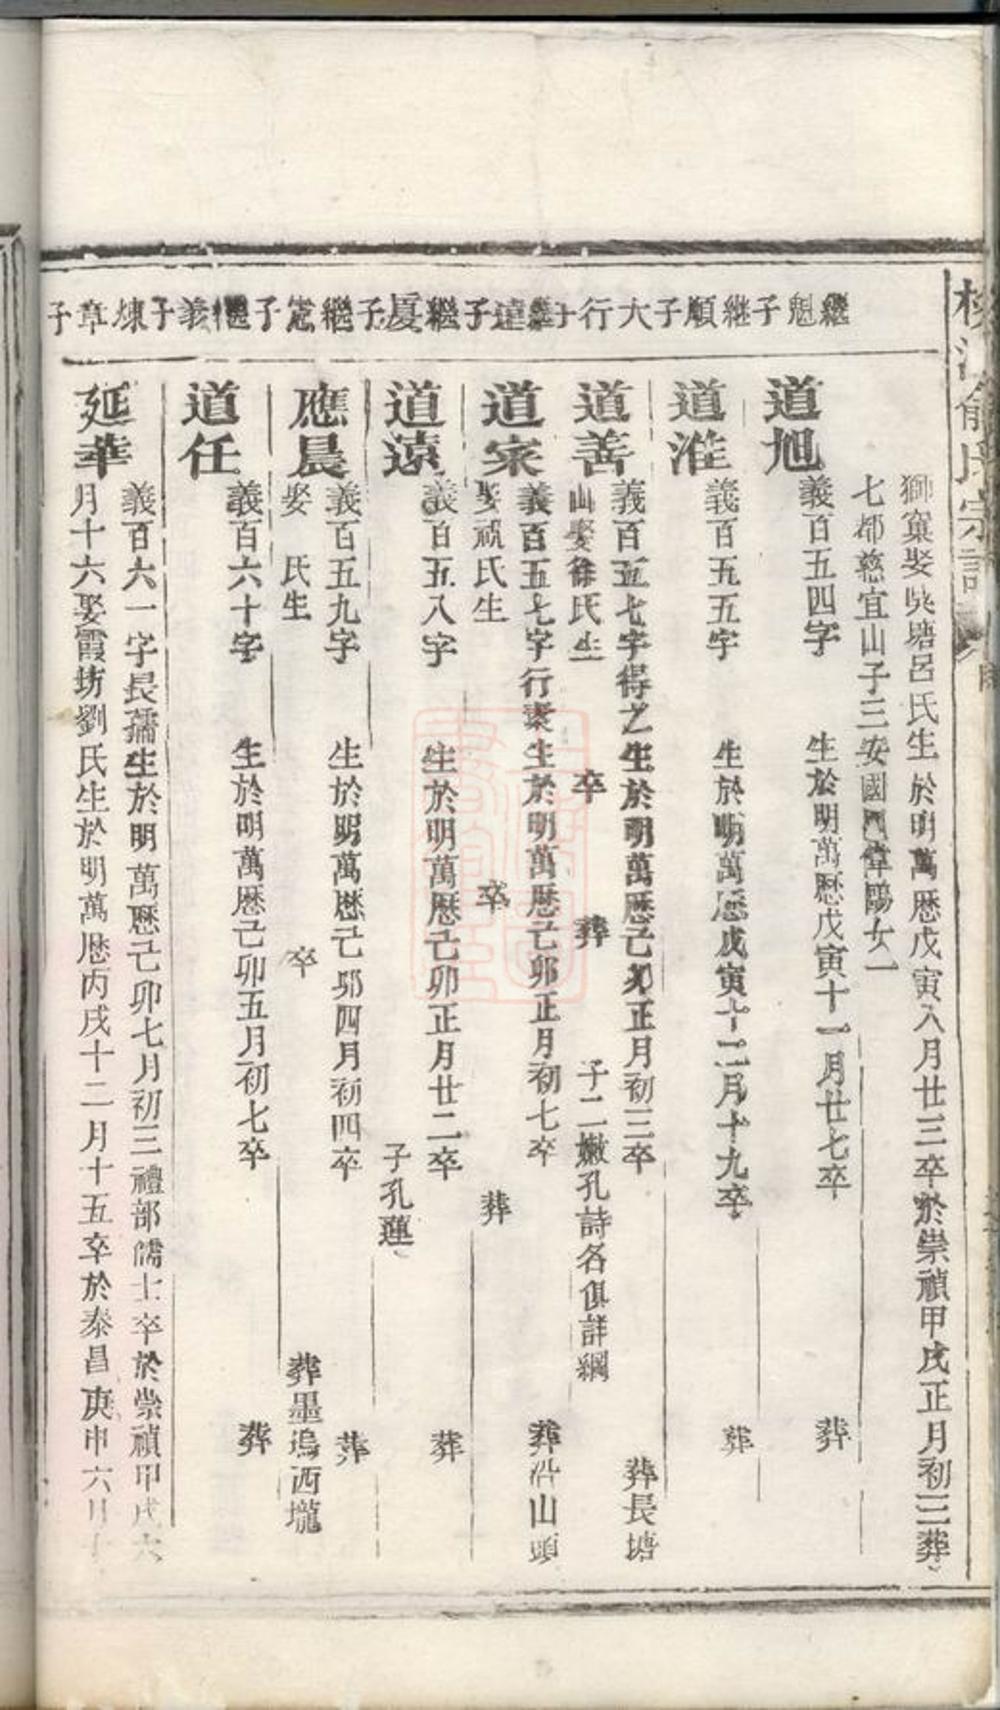 俞氏宗譜
繼魁子繼順子大行子繼達子繼憂子繼憲子繼義子煉章子
獅窠娶吳塘呂氏生於明萬厯戊寅八月廿三卒於崇禎甲戌正月初三葬
七都慈宜山子三安國女一
道旭
義百五四字 生於明萬厯戊寅十一月廿七卒 葬
道淮
義百五五字 生於明萬厯戊寅十二月十九卒 葬
道善
義百五七字得之生於明萬厯己卯正月初三卒 葬長塘
山娶徐氏生 卒 葬 子二嫩孔詩各俱詳綱
道宗
義百五七字行素生於明萬厯己卯正月初七卒 葬沿山頭
娶 氏生 卒 葬
道遠
義百五八字 生於明萬厯己卯正月廿二卒 葬
子孔蓮
應晨
義百五九字 生於明萬厯己卯四月初四卒 葬
娶 氏生 卒 葬墨塢西壠
道任
義百六十字 生於明萬厯己卯五月初七卒 葬
延華
義百六一字長孺生於明萬厯己卯七月初三禮部儒士卒於崇禎甲戌六
月十六娶霞坊劉氏生於明萬厯丙戌十二月十五卒於泰昌庚申六月十